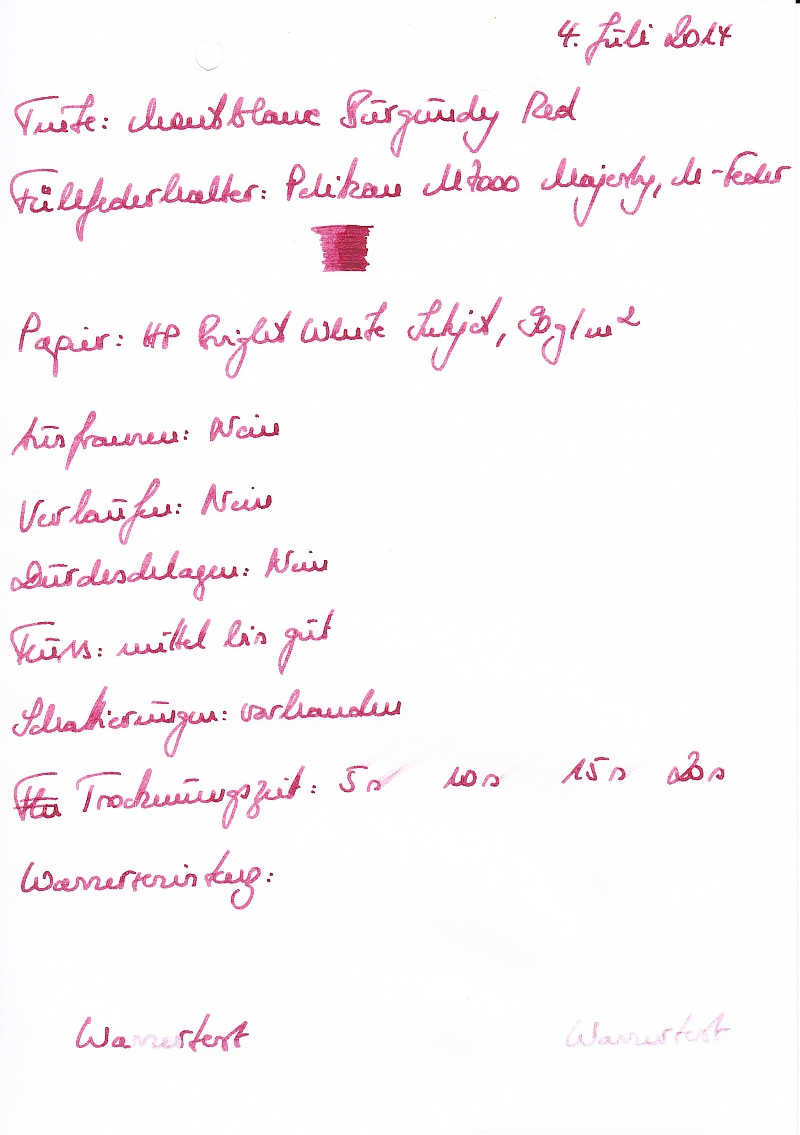 4. Juli 2014
Tinte: Montblanc Burgundy Red
Füllfederhalter: Pelikan M7000 Majesty, M-Feder
Papier: HP Bright White Inkjet, 90g/m²
Ausfransen: Nein
Verlaufen: Nein
Durchschlagen: Nein
Fluss: mittel bis gut
Schattierungen: vorhanden
Trocknungszeit: 5s 10s 15s 20s
Wasserfestigkeit:
Wassertest Wassertest